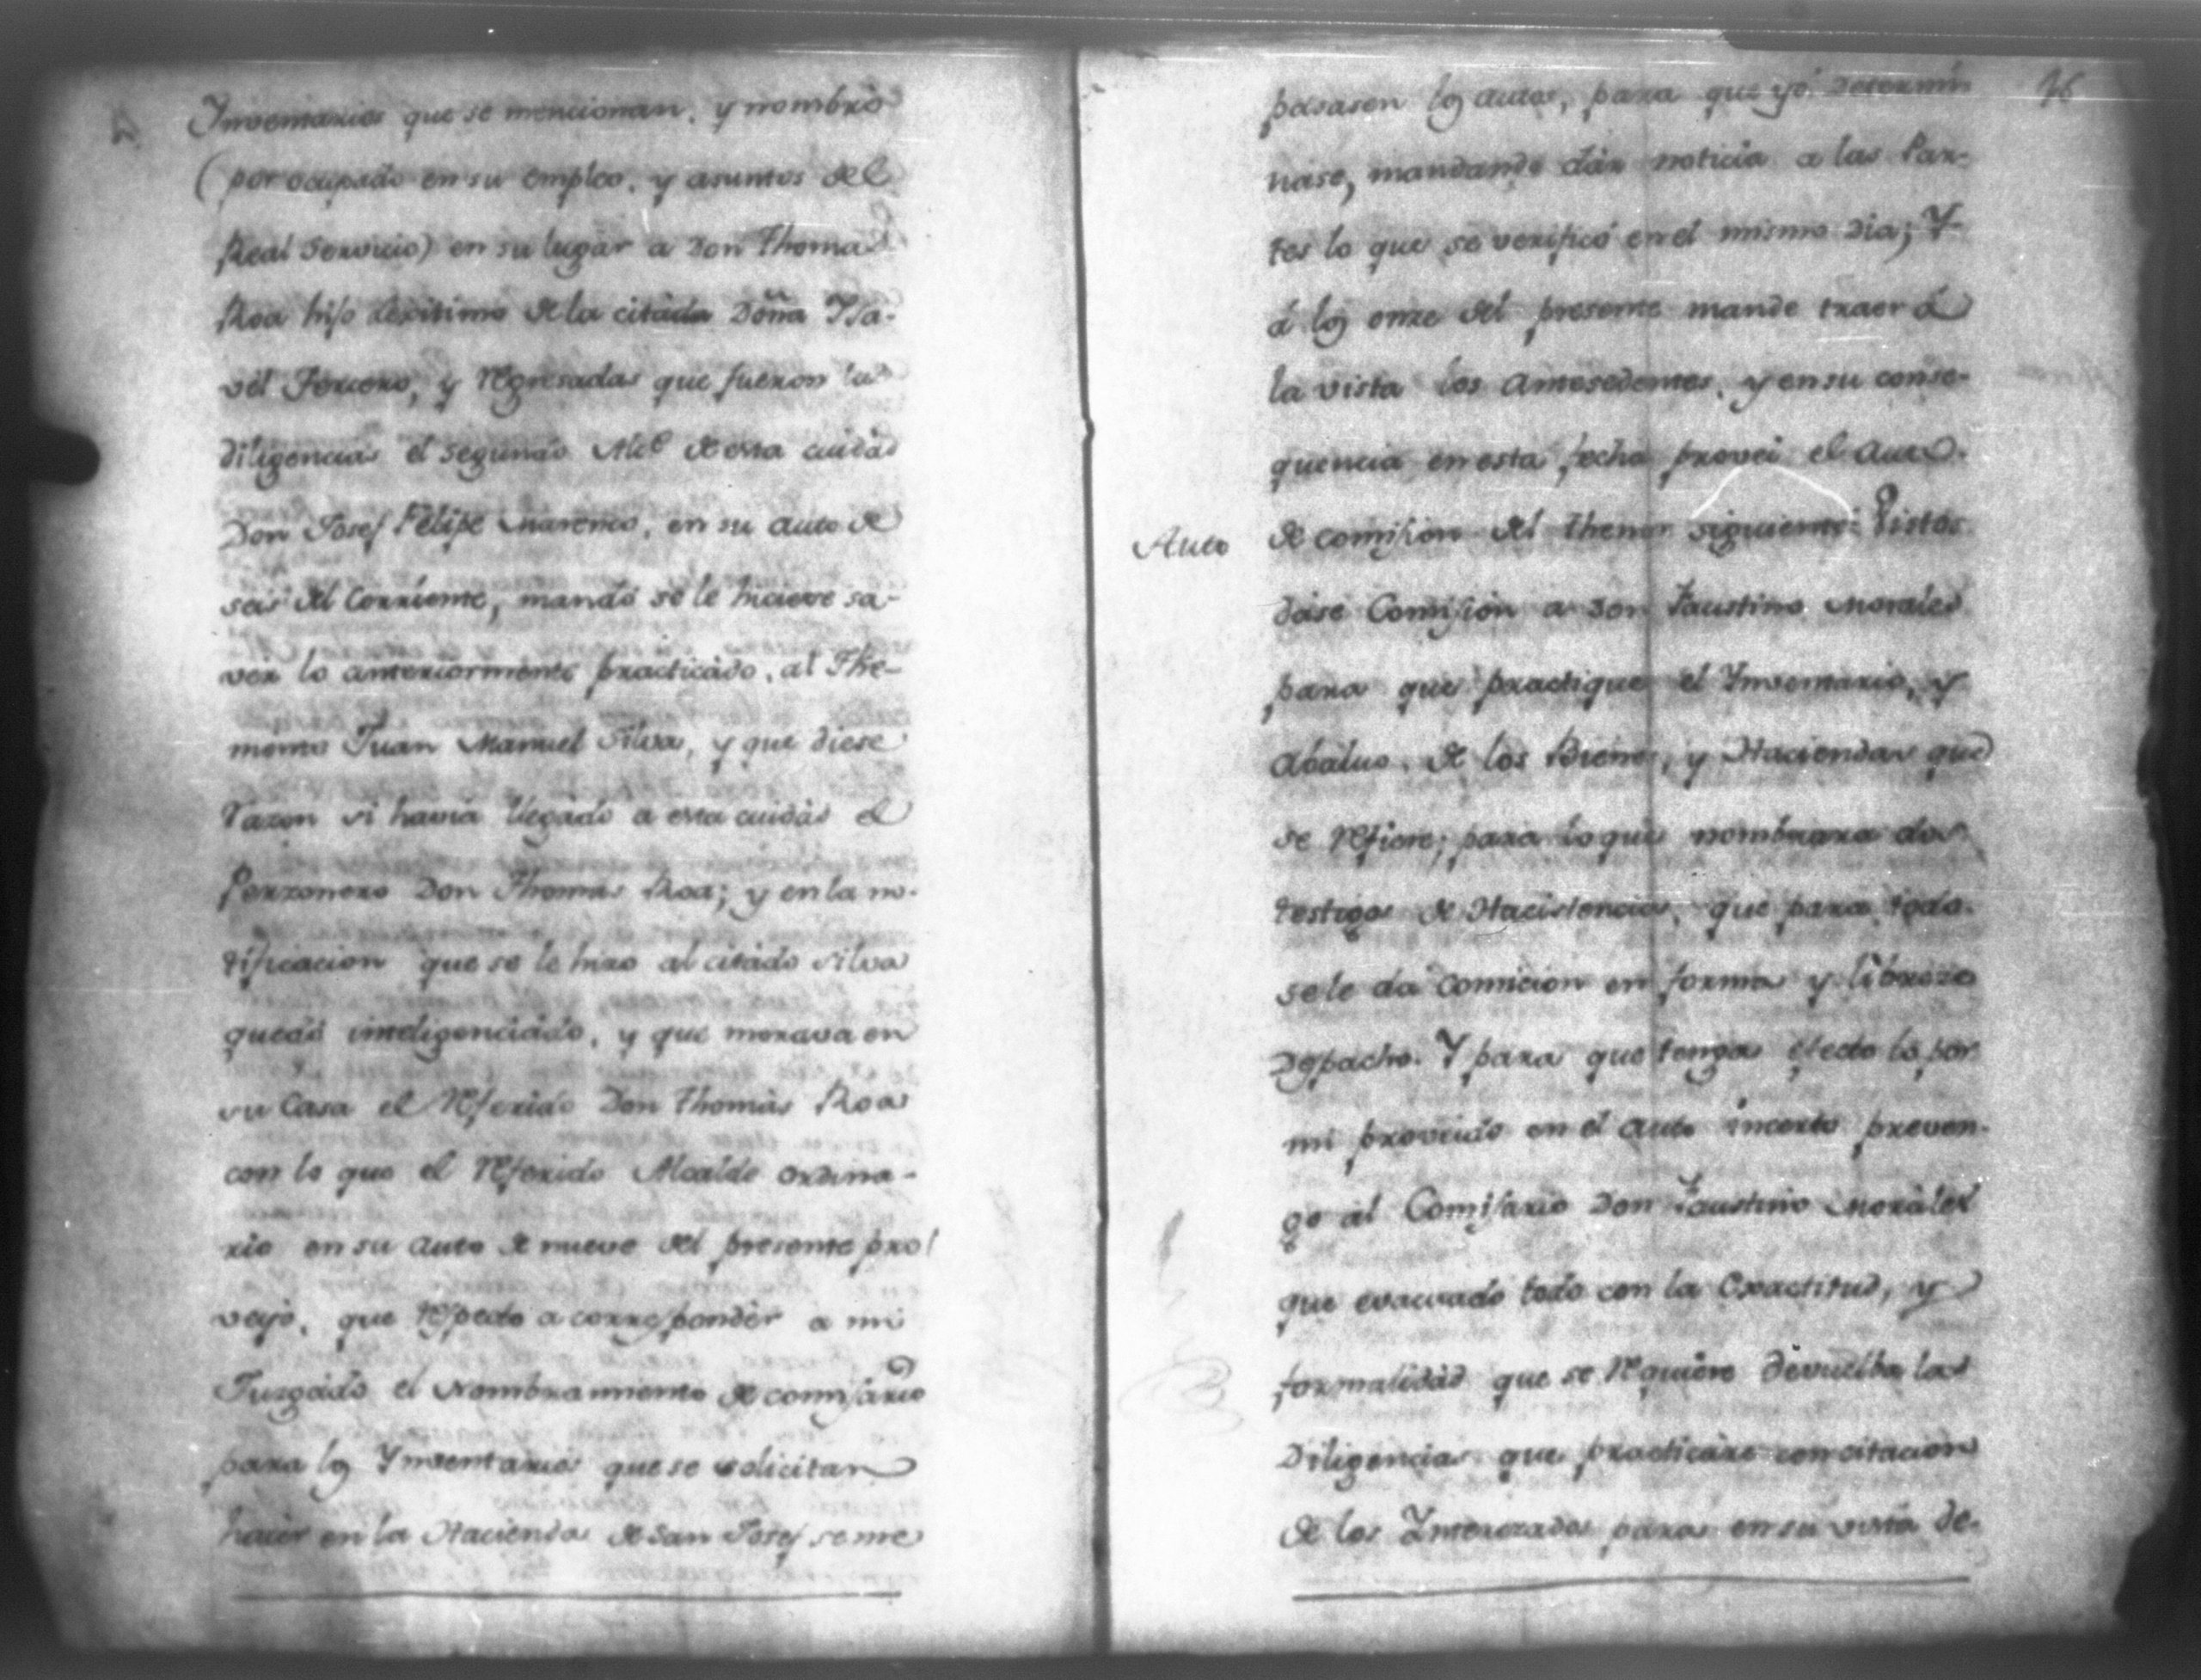 Ynventarios que se mencionan, y nombró
(por ocupado en su empleo, y asuntos del
Real Servicio) en su lugar a Don Thomas
Roa hijo lexitimo de la citada Doña Ysa-
vel Forero, y Regresadas que fueron las
diligencias el segundo Alc.e de esta ciudad
Don Josef Felipe Marenco, en su auto de
seis del Corriente, mandó se le hiciere sa-
ver lo anteriormente practicado, al The-
niente Juan Manuel Silva, y que diese
razon si havia llegado a esta ciudad el
Perzonero Don Thomas Roa; y en la no-
tificacion que se le hizo al citado Silva
quedó inteligenciado, y que morava en
su Casa el Referido Don Thomàs Roa
con lo que el Referido Alcalde ordina-
rio en su auto de nueve del presente pro
veyó, que respecto a corresponder a mi
Juzgado el Nombramiento de comisario
para los Ynventarios que se solicitan
hacer en la Hacienda de San Josef se me
76
pasasen los autos, para que yó determi
nase, mandando dàr noticia a las Par-
tes lo que se verificó en el mismo dia; Y
á los onze del presente mande traer á
la vista los antesedentes, y en su conse-
quencia en esta fecha provei el auto
Auto
de comision del thenor siguiente: Vistos
dase Comision a Don Faustino Morales
para que practique el Ynventario, y
Abaluo de los Bienes, y Haciendas que
se Refiere; para lo que nombrara dos
testigos de Hacistencia, que para todo
se le da comicion en forma y librese
Despacho. Y para que tenga efecto lo por
mi proveido en el auto incerto preven-
go al Comisario Don Faustino Morales
que evacuado todo con la Exactitud, y
formalidad que se Requiere devuelba las
Diligencias que practicare con citacion
de los Ynterezados para en su vista de-